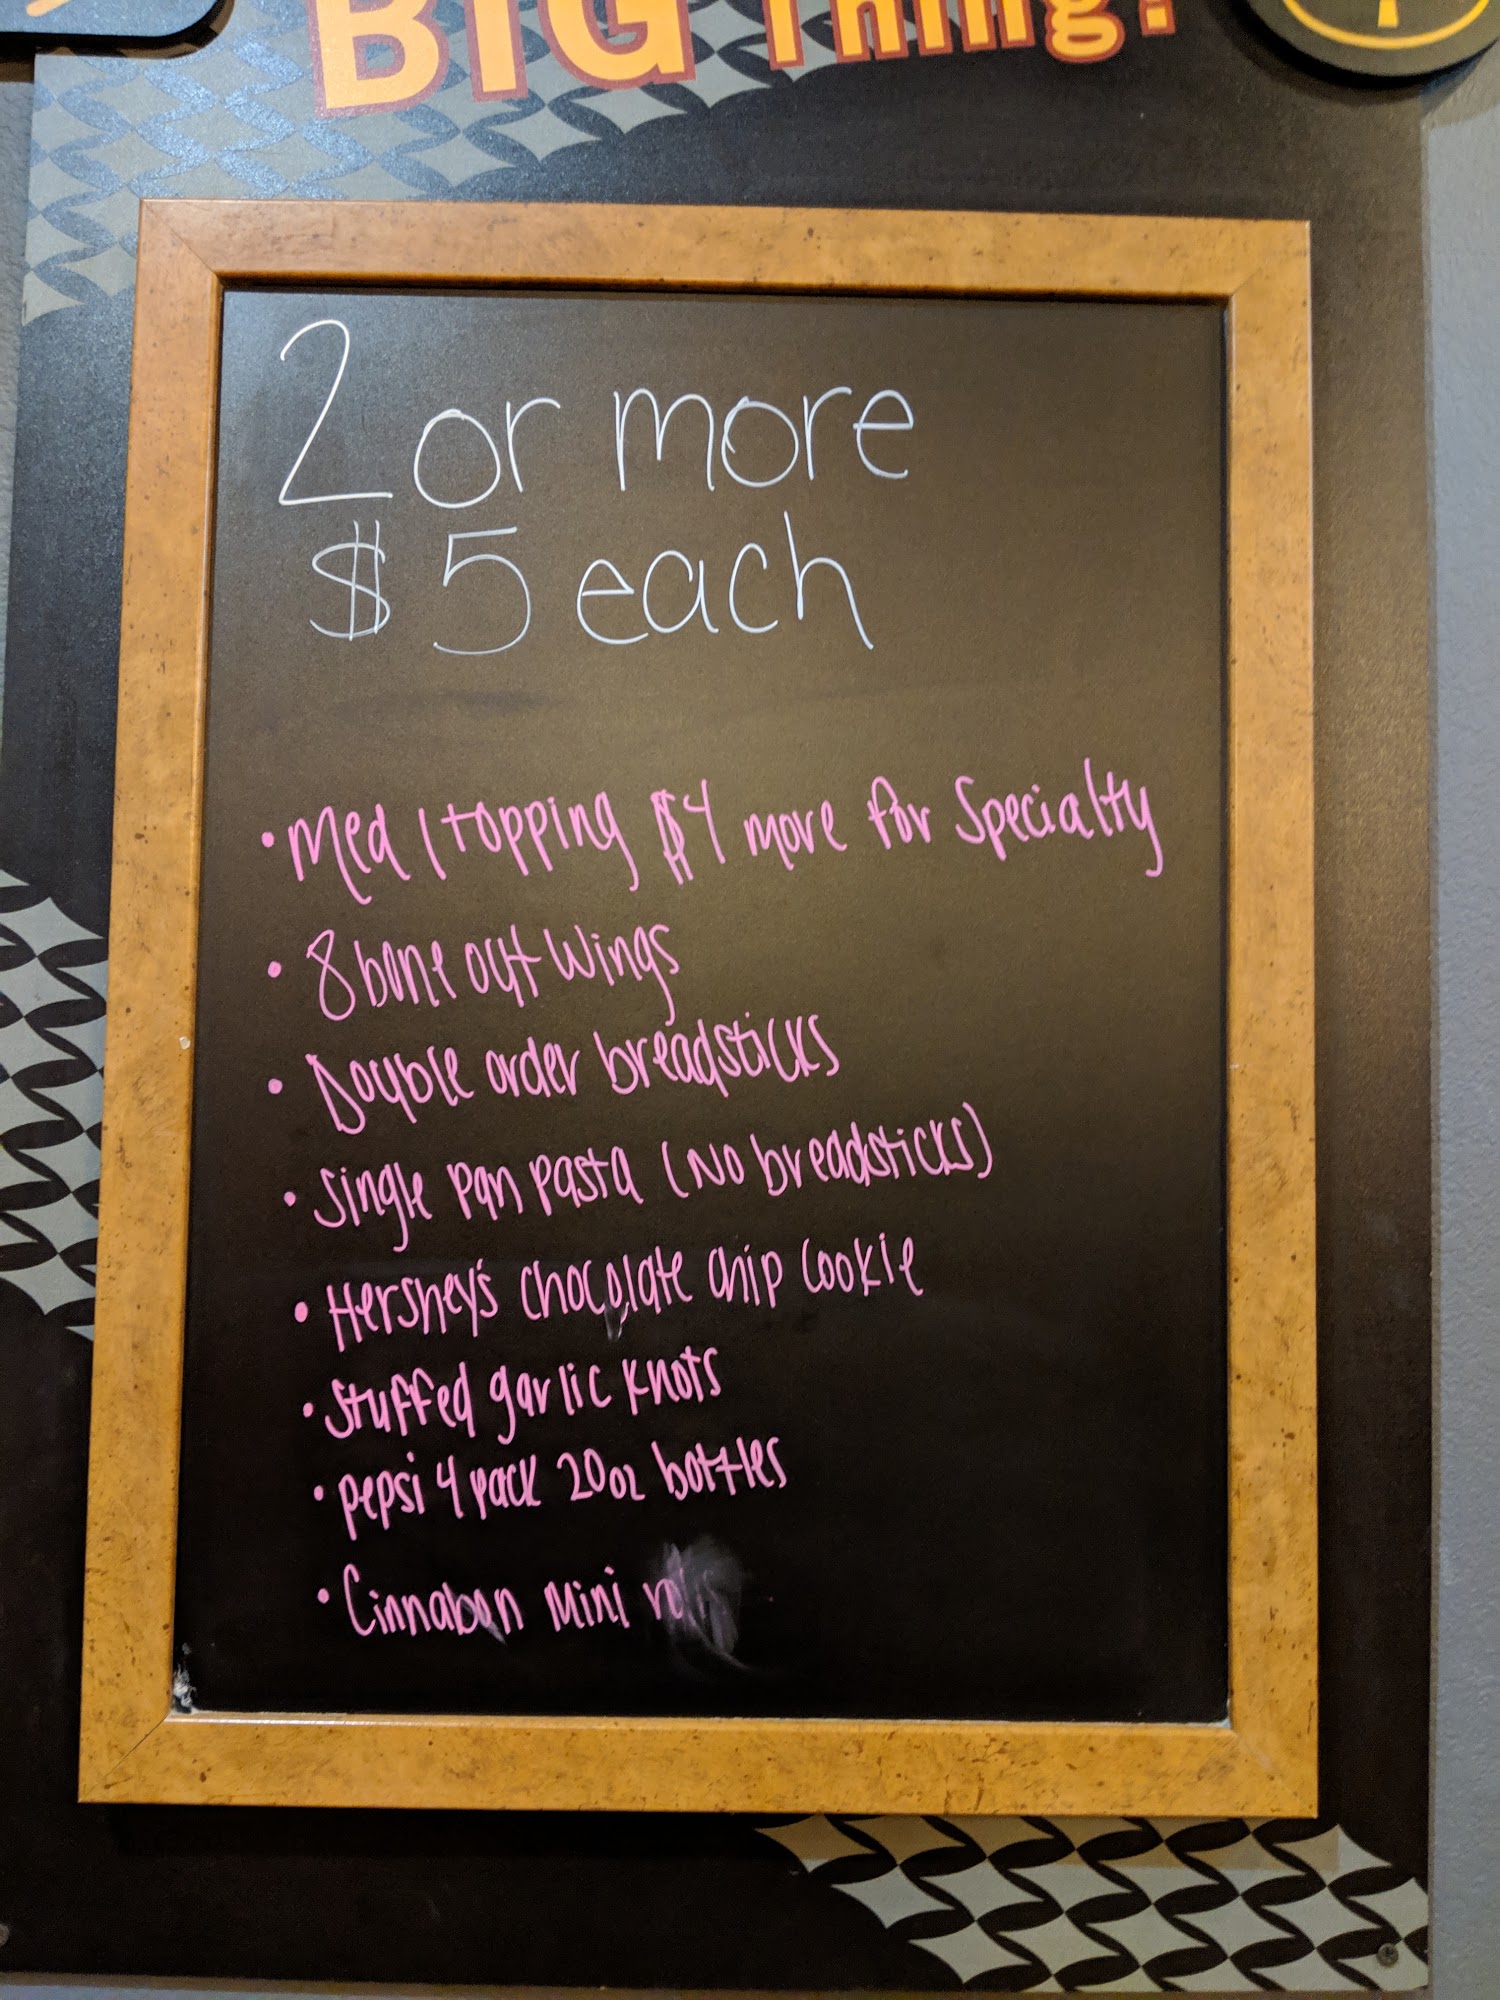 BIG Thing!
2 or more
$5 each
• Med 1 topping $4 more for Specialty
• 8 bone out wings
• Double order breadsticks
• Single pan pasta (No breadsticks)
• Hershey's chocolate chip cookie
• Stuffed garlic knots
• pepsi 4 pack 20oz bottles
• Cinnabon mini